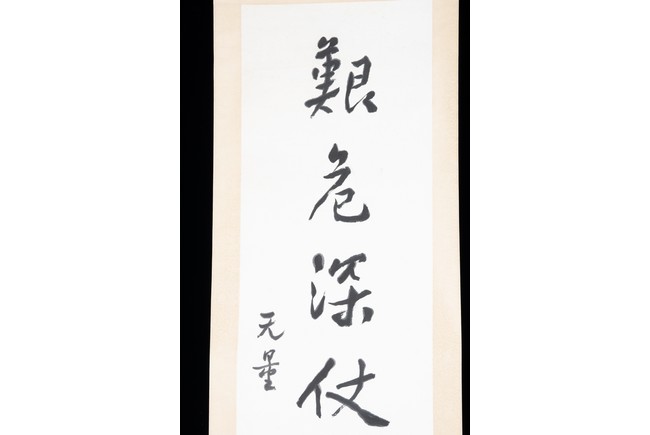 艱危深仗
无量